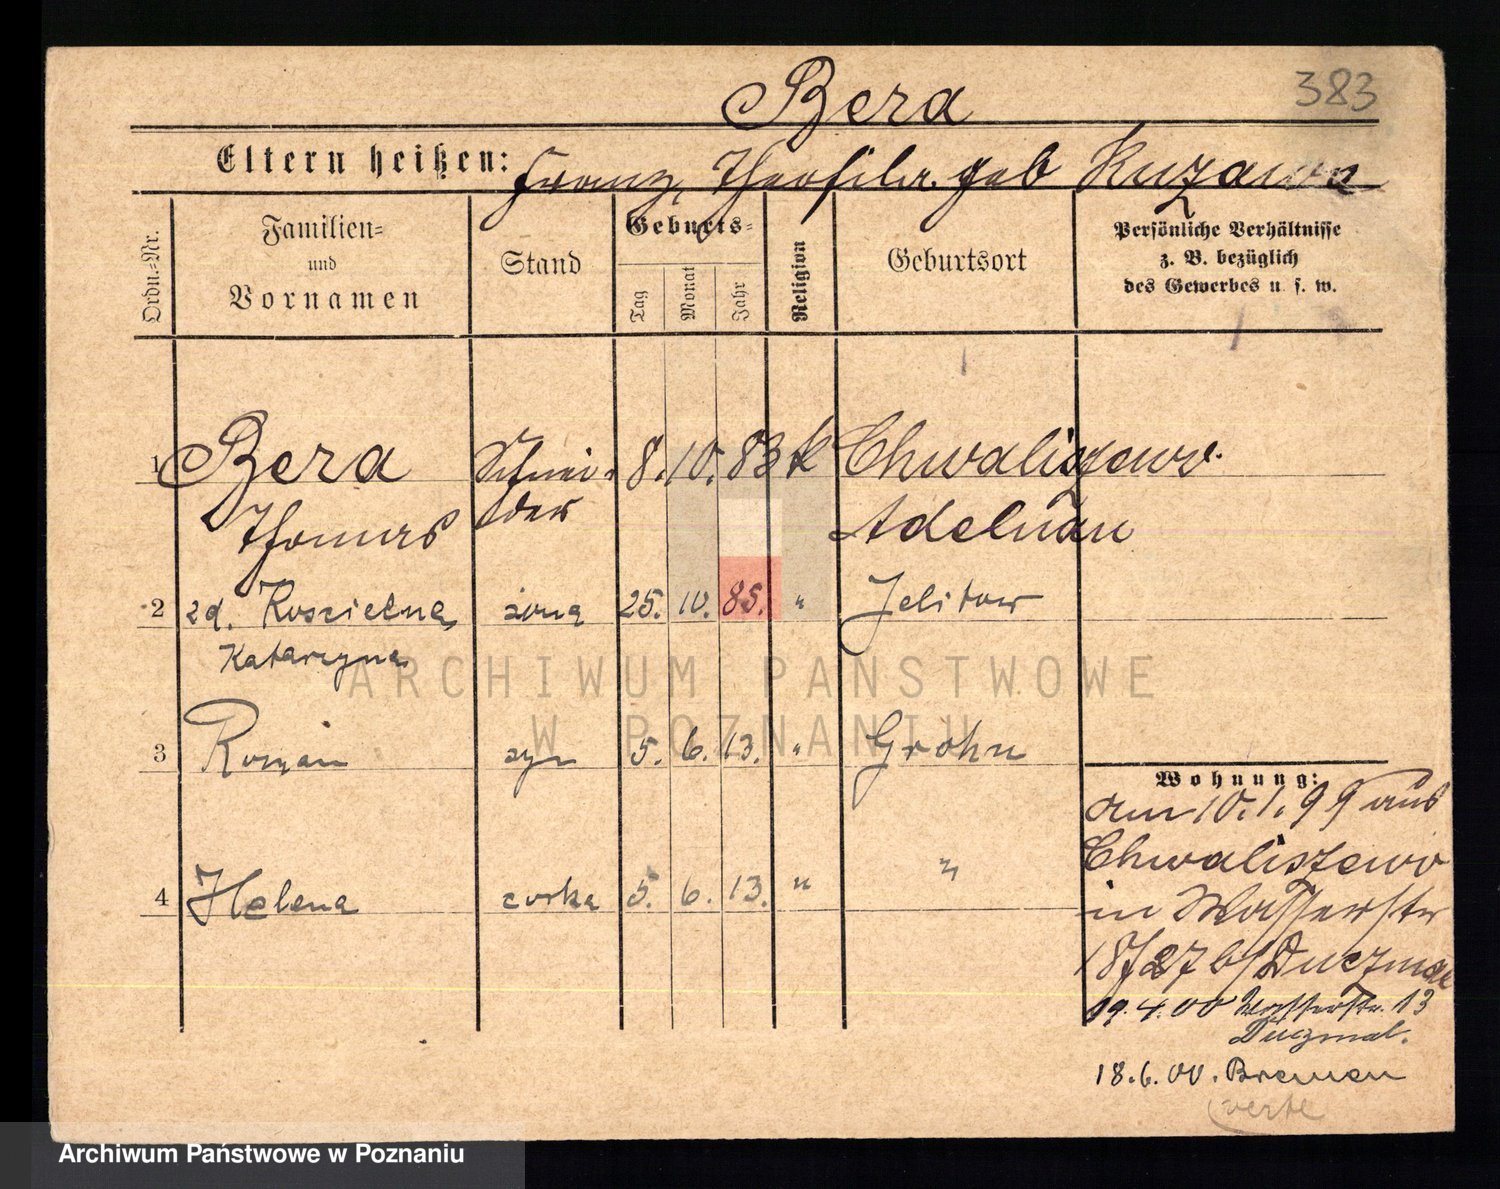 383
Bera
Eltern heißen: Franz, Theofila geb Kuzawa
Ordn.=Nr.
Familien=
und
Vornamen
Stand
Geburts=
Tag
Monat
Jahr
Religion
Geburtsort
Persönliche Verhältnisse
z. B. bezüglich
des Gewerbes u. s. w.
1 Bera Schnei- 8. 10. 83 k Chwaliszewo
Thomas der Adelnau
2 zd. Koscielna żona 25. 10. 85. " Jelitow
Katarzyna
3 Roman syn 5. 6. 13. " Grohn
Wohnung:
am 10.1.99 aus
Chwaliszewo
4 Helena corka 5. 6. 13. " "
in Wasserstr
18/27 b/ Duczmal
19.4.00 Wasserstr. 13
Duczmal.
18.6.00. Bremen
verte
ARCHIWUM PAŃSTWOWE
W POZNANIU
Archiwum Państwowe w Poznaniu